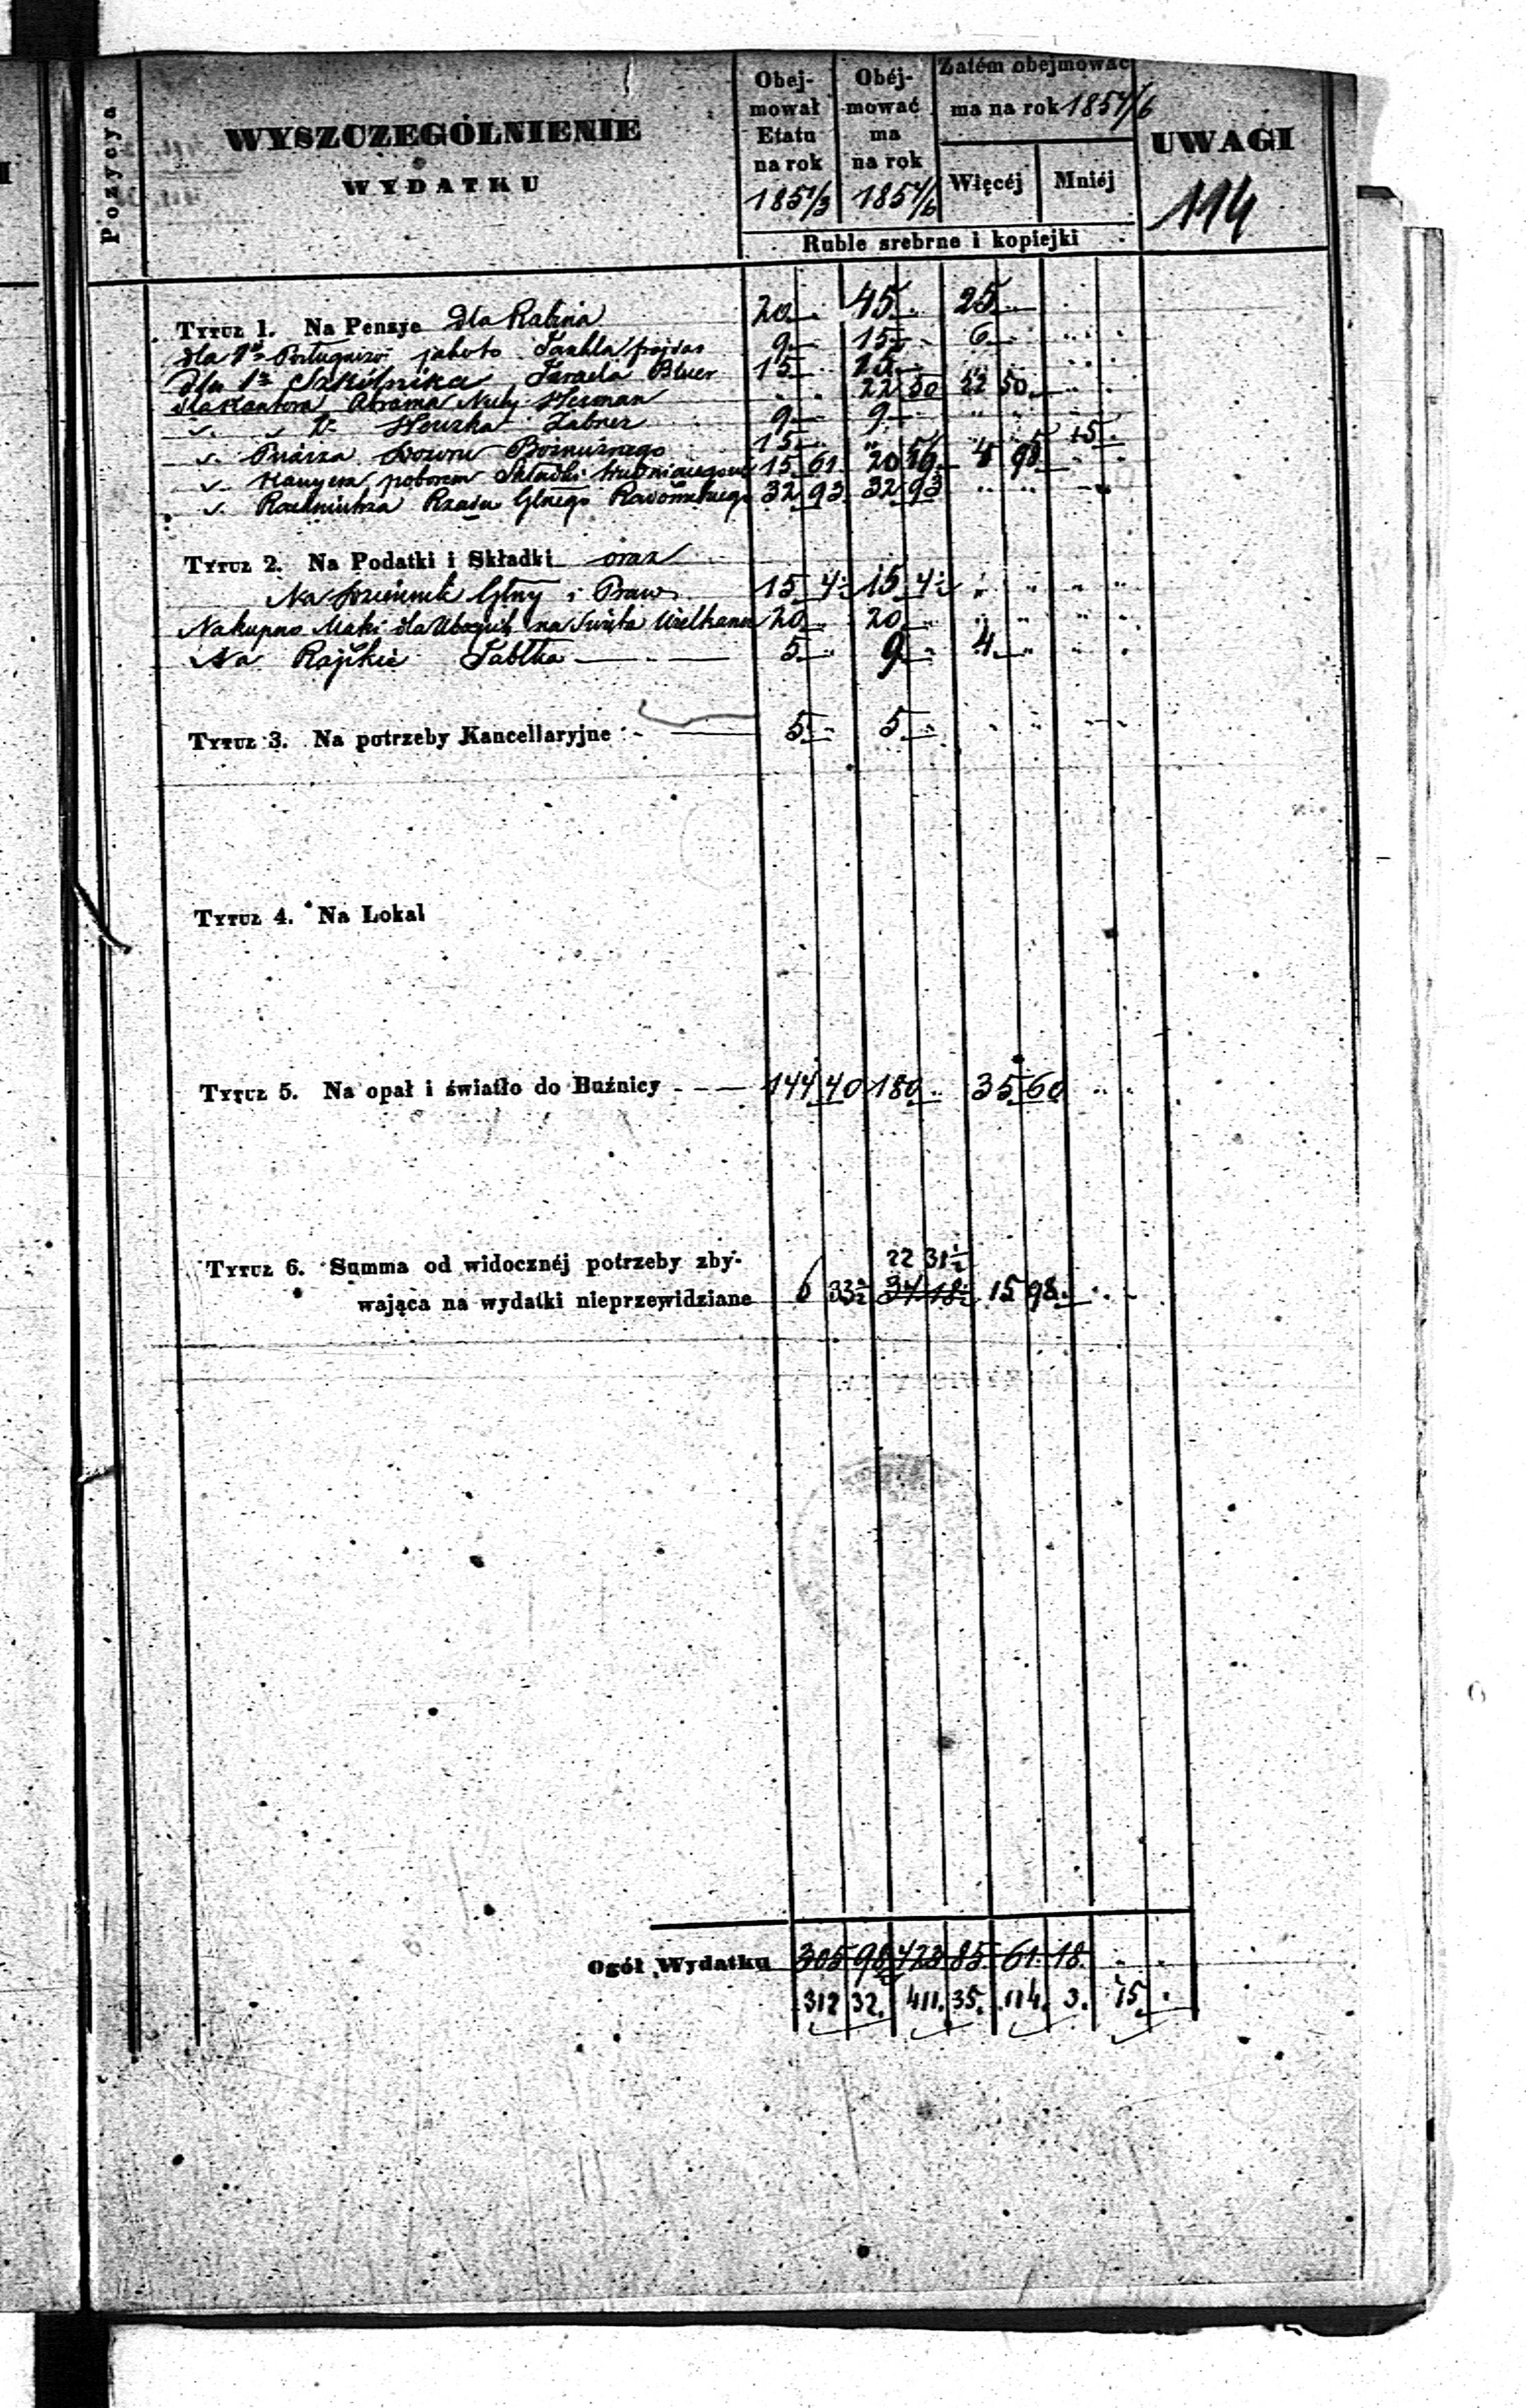 Pozycya
WYSZCZEGÓLNIENIE
WYDATKU
Obej-
mował
Etatu
na rok
1851/3
Obéj-
mować
ma
na rok
1854/6
Zatém obejmować
ma na rok 1854/6
Więcéj Mniéj
UWAGI
114
Ruble srebrne i kopiejki
Tytuł 1. Na Pensye Dla Rabina 20 45 25
dla jako to 9 15 6
dla Szkólnika Izraela 15
dla Kantora Abrama Herman 22 50 22 50
Herszka 9 9
Pisarza Dozoru Bożnicznego 15 15
poborem Składki 15 61 20 98
Rachmistrza Rządu Radomskiego 32 93 32 93
Tytuł 2. Na Podatki i Składki oraz
Na Dziennik Głny i Praw 15 4½ 15 4½
Na kupno Mąki dla Ubogich na Swięta Wielkanoc 20 20
Na Rajskie Jabłka 5 9 4
Tytuł 3. Na potrzeby Kancellaryjne 5 5
Tytuł 4. Na Lokal
Tytuł 5. Na opał i światło do Buźnicy 144 40 180 35 60
22 31½
Tytuł 6. Summa od widocznéj potrzeby zby-
wająca na wydatki nieprzewidziane 6 33½ 37 18½ 15 98
Ogół Wydatku 305 98 423 85 61 18
312 32 411 35 114 3 15